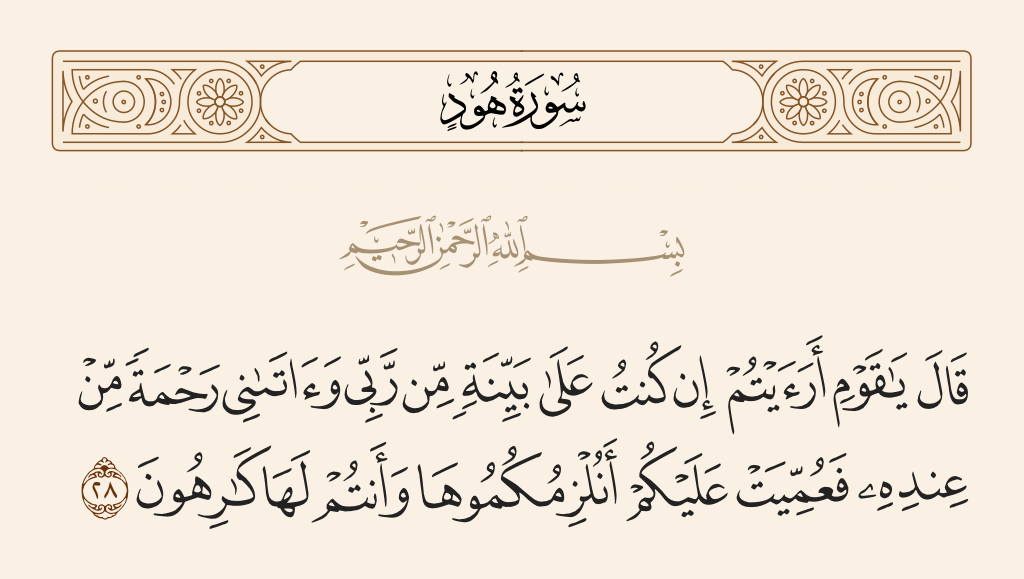 سُورَةُ هُودٍ
بِسْمِ ٱللَّهِ ٱلرَّحْمَٰنِ ٱلرَّحِيمِ
قَالَ يَٰقَوْمِ أَرَءَيْتُمْ إِن كُنتُ عَلَىٰ بَيِّنَةٍ مِّن رَّبِّى وَءَاتَىٰنِى رَحْمَةً مِّنْ
عِندِهِۦ فَعُمِّيَتْ عَلَيْكُمْ أَنُلْزِمُكُمُوهَا وَأَنتُمْ لَهَا كَٰرِهُونَ ٢٨